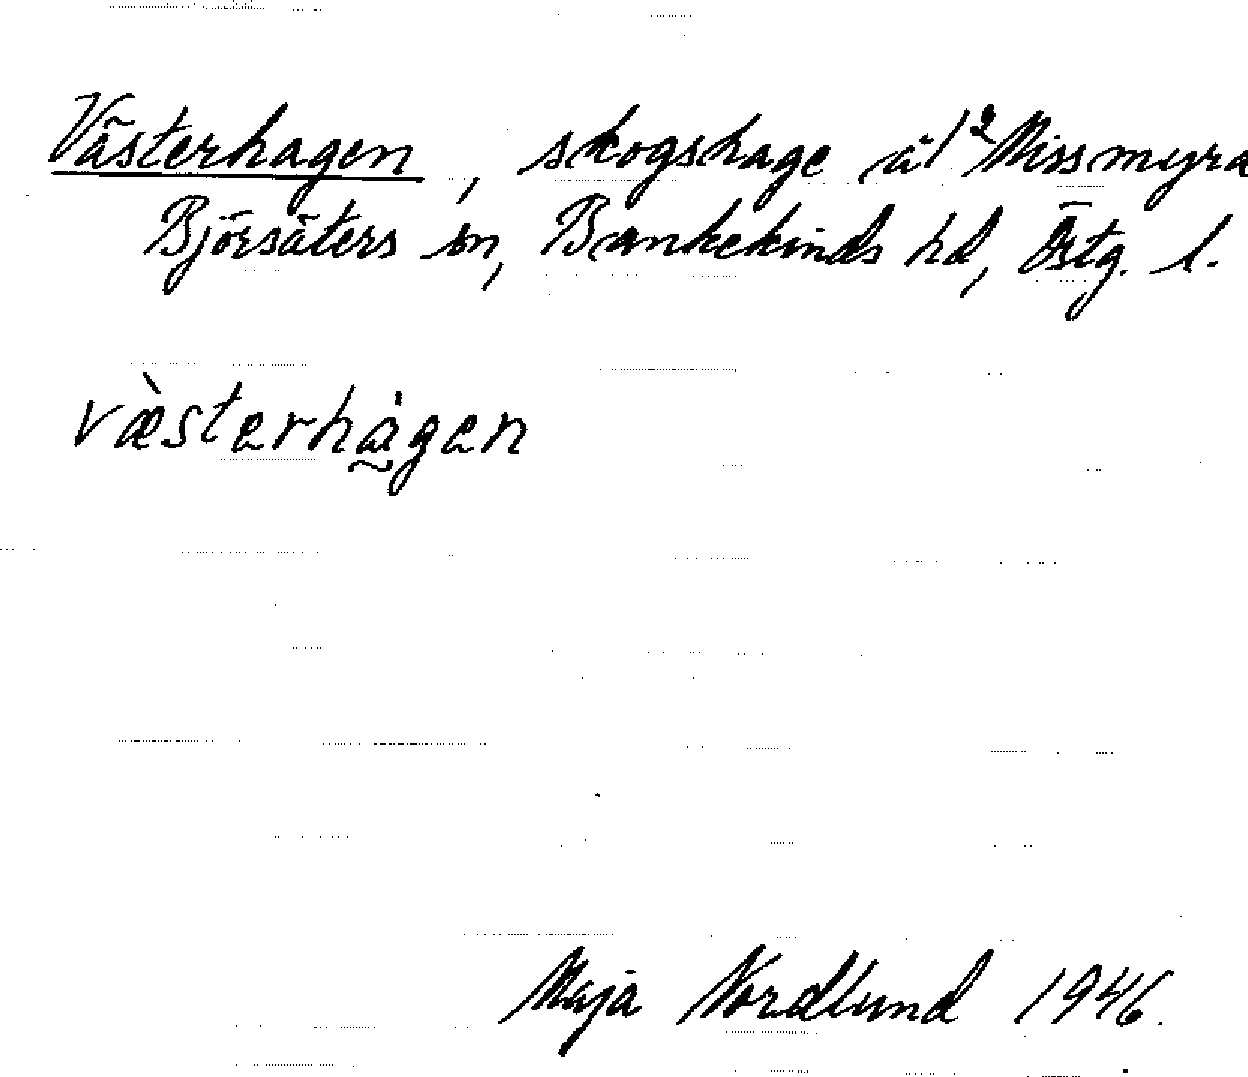 Västerhagen, skogshage å 1² Missmyra
Björsäters sn, Bankekinds hd, Östg. l.
væ̀sterhȧ̰gen
Maja Nordlund 1946.